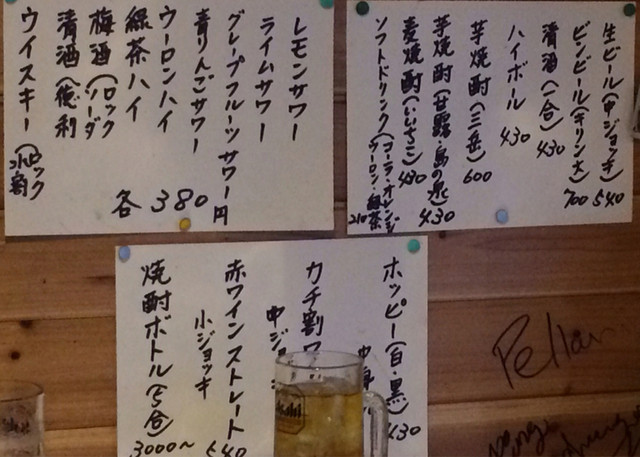 レモンサワー
ライムサワー
グレープフルーツサワー
青りんごサワー
ウーロンハイ
緑茶ハイ
梅酒(ロック ソーダ
清酒(徳利
ウイスキー(ロック 水割
各380円
生ビール(中ジョッキ)540
ビンビール(キリン大)700
清酒(一合)430
ハイボール430
芋焼酎(三岳)600
芋焼酎(甘露・島の泉)430
麦焼酎(いいちこ)430
ソフトドリンク(コーラ・オレンジ ウーロン・緑茶 210
ホッピー(白・黒)
430
カチ割ワ
中ジ
赤ワインストレート
小ジョッキ
540
焼酎ボトル(5合)
3000〜
Asahi